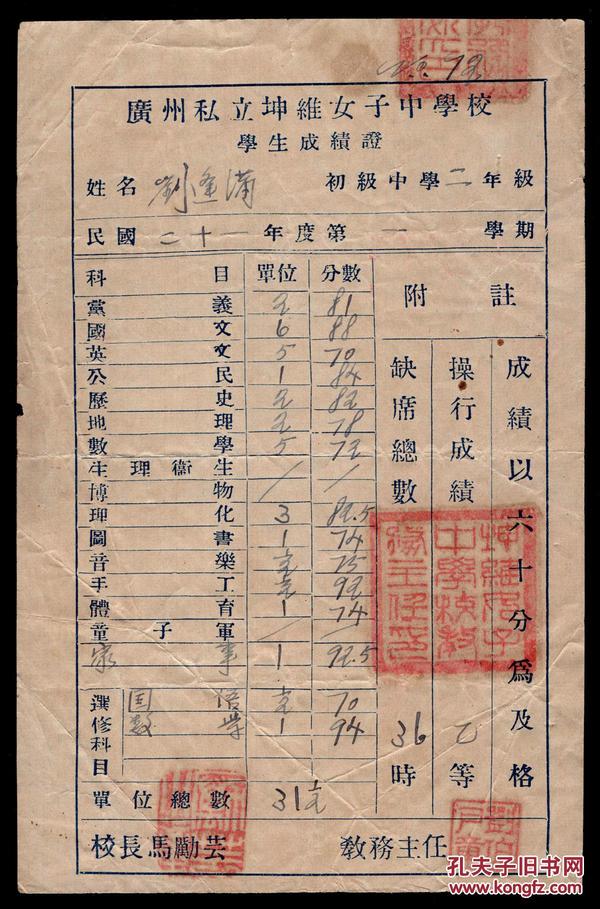 廣州私立坤維女子中學校
學生成績證
姓名 劉蓮滿 初級中學二年級
民國二十一年度第一學期
科目 單位 分數
黨義 2 81
國文 6 88
英文 5 70
公民 1 84
歷史 2 82
地理 2 78
數學 5 72
生理衛生 / /
博物
理化 3 82.5
圖書 1 74
音樂 ½ 75
手工 ½ 92
體育 1 74
童子軍 / /
家事 1 92.5
選修科目
国語 ½ 70
数学 1 94
單位總數 31½
附註
成績以六十分為及格
操行成績 乙等
缺席總數 36時
坤維女子
中學校教
務主任印
校長馬勵芸
教務主任
孔夫子旧书网
www.kongfz.com